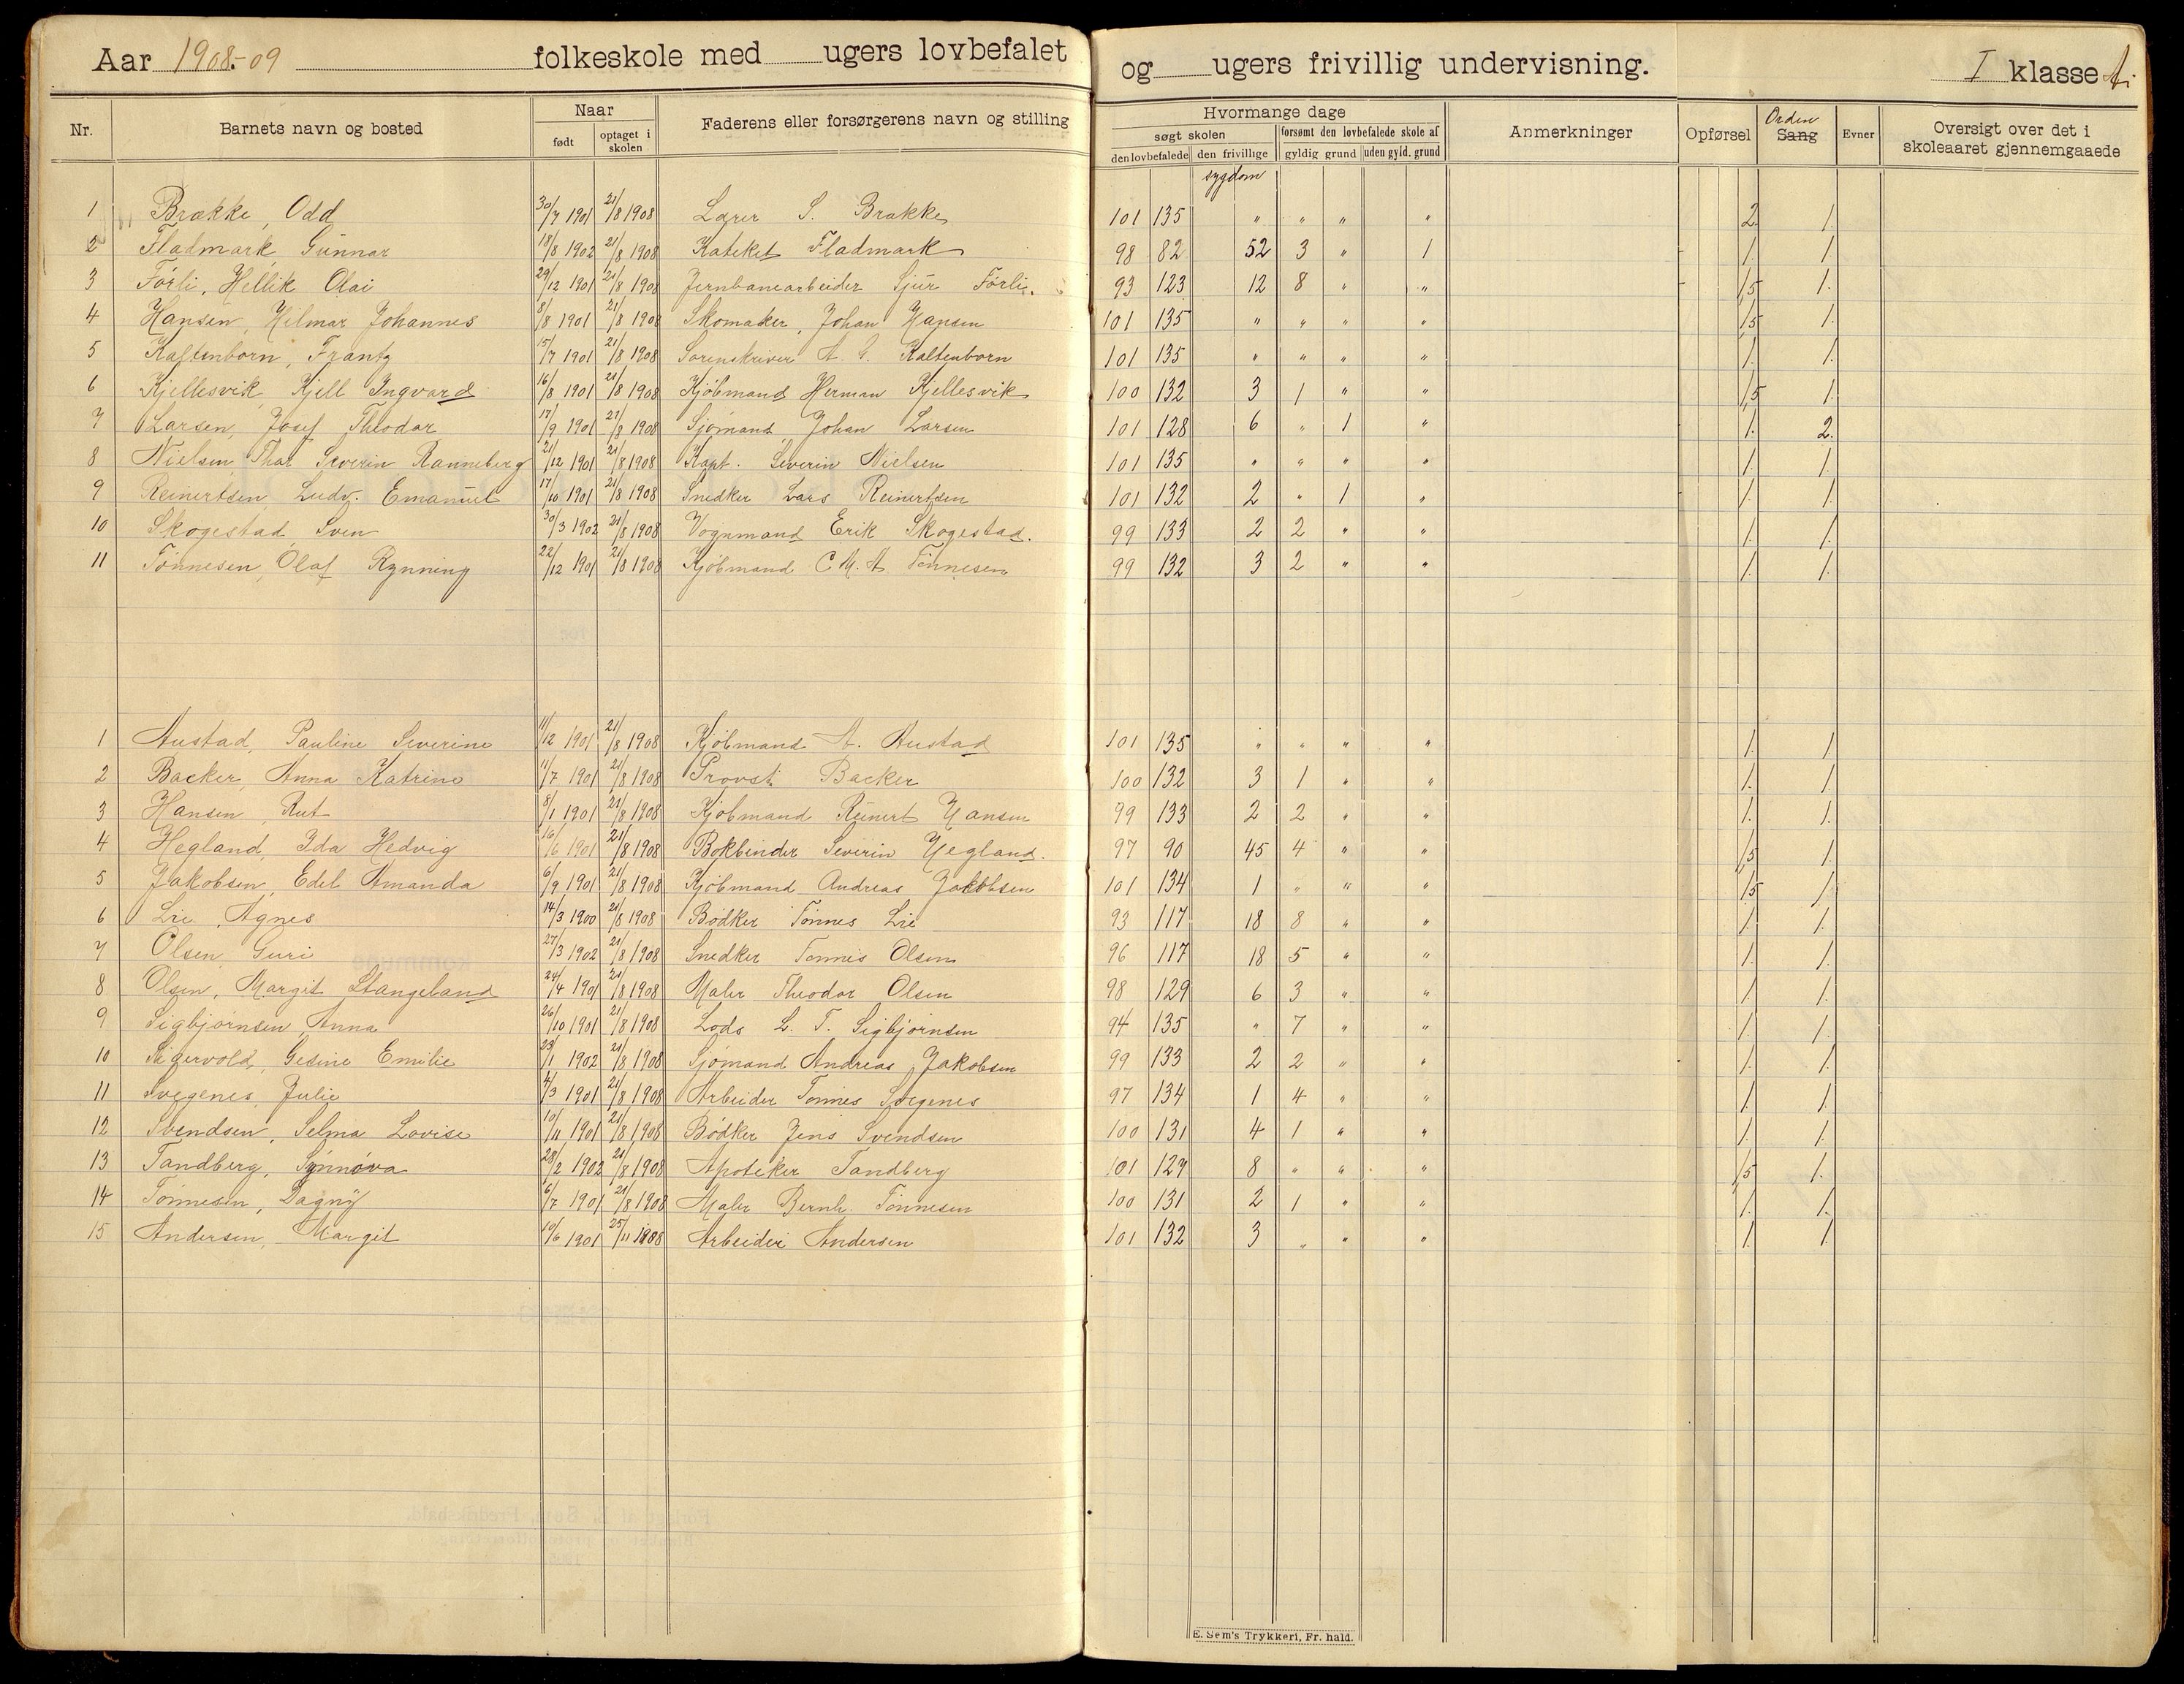 Aar 1908.-09 folkeskole med ugers lovbefalet og ugers frivillig undervisning. I klasse A.
Nr. Barnets navn og bosted Naar født optaget i skolen Faderens eller forsørgerens navn og stilling Hvormange dage søgt skolen den lovbefalede den frivillige forsømt den lovbefalede skole af gyldig grund uden gyld. grund Anmerkninger Opførsel Sang Orden Evner Oversigt over det i skoleaaret gjennemgaaede
sygdom
1 Brække, Odd 30/7 1901 21/8 1908 Lærer S. Brække 101 135 " " " " 2 1.
2 Fladmark, Gunnar 18/8 1902 21/8 1908 Kateket Fladmark 98 82 52 3 " 1 1. 1
3 Førli, Hellik Olai 29/12 1901 21/8 1908 Jernbanearbeider Sjur Førli. 93 123 12 8 " " 1,5 1.
4 Hansen, Hilmar Johannes 8/8 1901 21/8 1908 Skomaker, Johan Hansen 101 135 " " " " 1,5 1.
5 Kaltenborn, Frantz 15/7 1901 21/8 1908 Sorenskriver Kaltenborn 101 135 " " " " 1. 1.
6 Kjellesvik, Kjell Ingvard 16/8 1901 21/8 1908 Kjøbmand Herman Kjellesvik 100 132 3 1 " " 1,5 1.
7 Larsen, Josef Theodor 17/9 1901 21/8 1908 Sjømand Johan Larsen 101 128 6 " 1 " 1. 2.
8 Nielsen, Thor Severin Ranneberg 21/12 1901 21/8 1908 Kapt. Severin Nielsen 101 135 " " " " 1. 1.
9 Reinertsen, Ludv. Emanuel 17/10 1901 21/8 1908 Snedker Lars Reinertsen 101 132 2 " 1 " 1. 1.
10 Skogestad, Sven 30/3 1902 21/8 1908 Vognmand Erik Skogestad. 99 133 2 2 " " 1. 1.
11 Tønnesen, Olaf Rynning 22/12 1901 21/8 1908 Kjøbmand C. M. A. Tønnesen 99 132 3 2 " " 1. 1.
1 Austad, Pauline Severine 11/12 1901 21/8 1908 Kjøbmand A. Austad 101 135 " " " " 1. 1
2 Backer, Anna Katrine 11/7 1901 21/8 1908 Provst Backer 100 132 3 1 " " 1. 1.
3 Hansen, Rut 8/1 1901 21/8 1908 Kjøbmand Reinert Hansen 99 133 2 2 " " 1. 1.
4 Hegland, Ida Hedvig 16/6 1901 21/8 1908 Bokbinder Severin Hegland. 97 90 45 4 " " 1,5 1.
5 Jakobsen, Edel Amanda 6/9 1901 21/8 1908 Kjøbmand Andreas Jakobsen 101 134 1 " " " 1,5 1.
6 Lie, Agnes 14/3 1900 21/8 1908 Bødker Tønnes Lie 93 117 18 8 " " 1. 1.
7 Olsen, Guri 27/3 1902 21/8 1908 Snedker Tønnes Olsen 96 117 18 5 " " 1. 1.
8 Olsen, Margit Stangeland 24/4 1901 21/8 1908 Maler Theodor Olsen 98 129 6 3 " " 1. 1.
9 Sigbjørnsen, Anna 26/10 1901 21/8 1908 Lods L. T. Sigbjørnsen 94 135 " 7 " " 1. 1.
10 Sigervold, Gesine Emilie 23/1 1902 21/8 1908 Sjømand Andreas Jakobsen 99 133 2 2 " " 1. 1.
11 Svegenes, Julie 4/3 1901 21/8 1908 Arbeider Tønnes Svegenes 97 134 1 4 " " 1. 1.
12 Svendsen, Selma Lovise 10/11 1901 21/8 1908 Bødker Jens Svendsen 100 131 4 1 " " 1. 1.
13 Tandberg, Synnøva 28/2 1902 21/8 1908 Apoteker Tandberg 101 127 8 " " " 1,5 1.
14 Tønnesen, Dagny 6/7 1901 21/8 1908 Maler Bernh. Tønnesen 100 131 2 1 " " 1. 1.
15 Andersen, Margit 10/6 1901 25/11 1908 Arbeider Andersen 101 132 3 " " " 1. 1.
E. Sem's Trykkeri, Fr. hald.